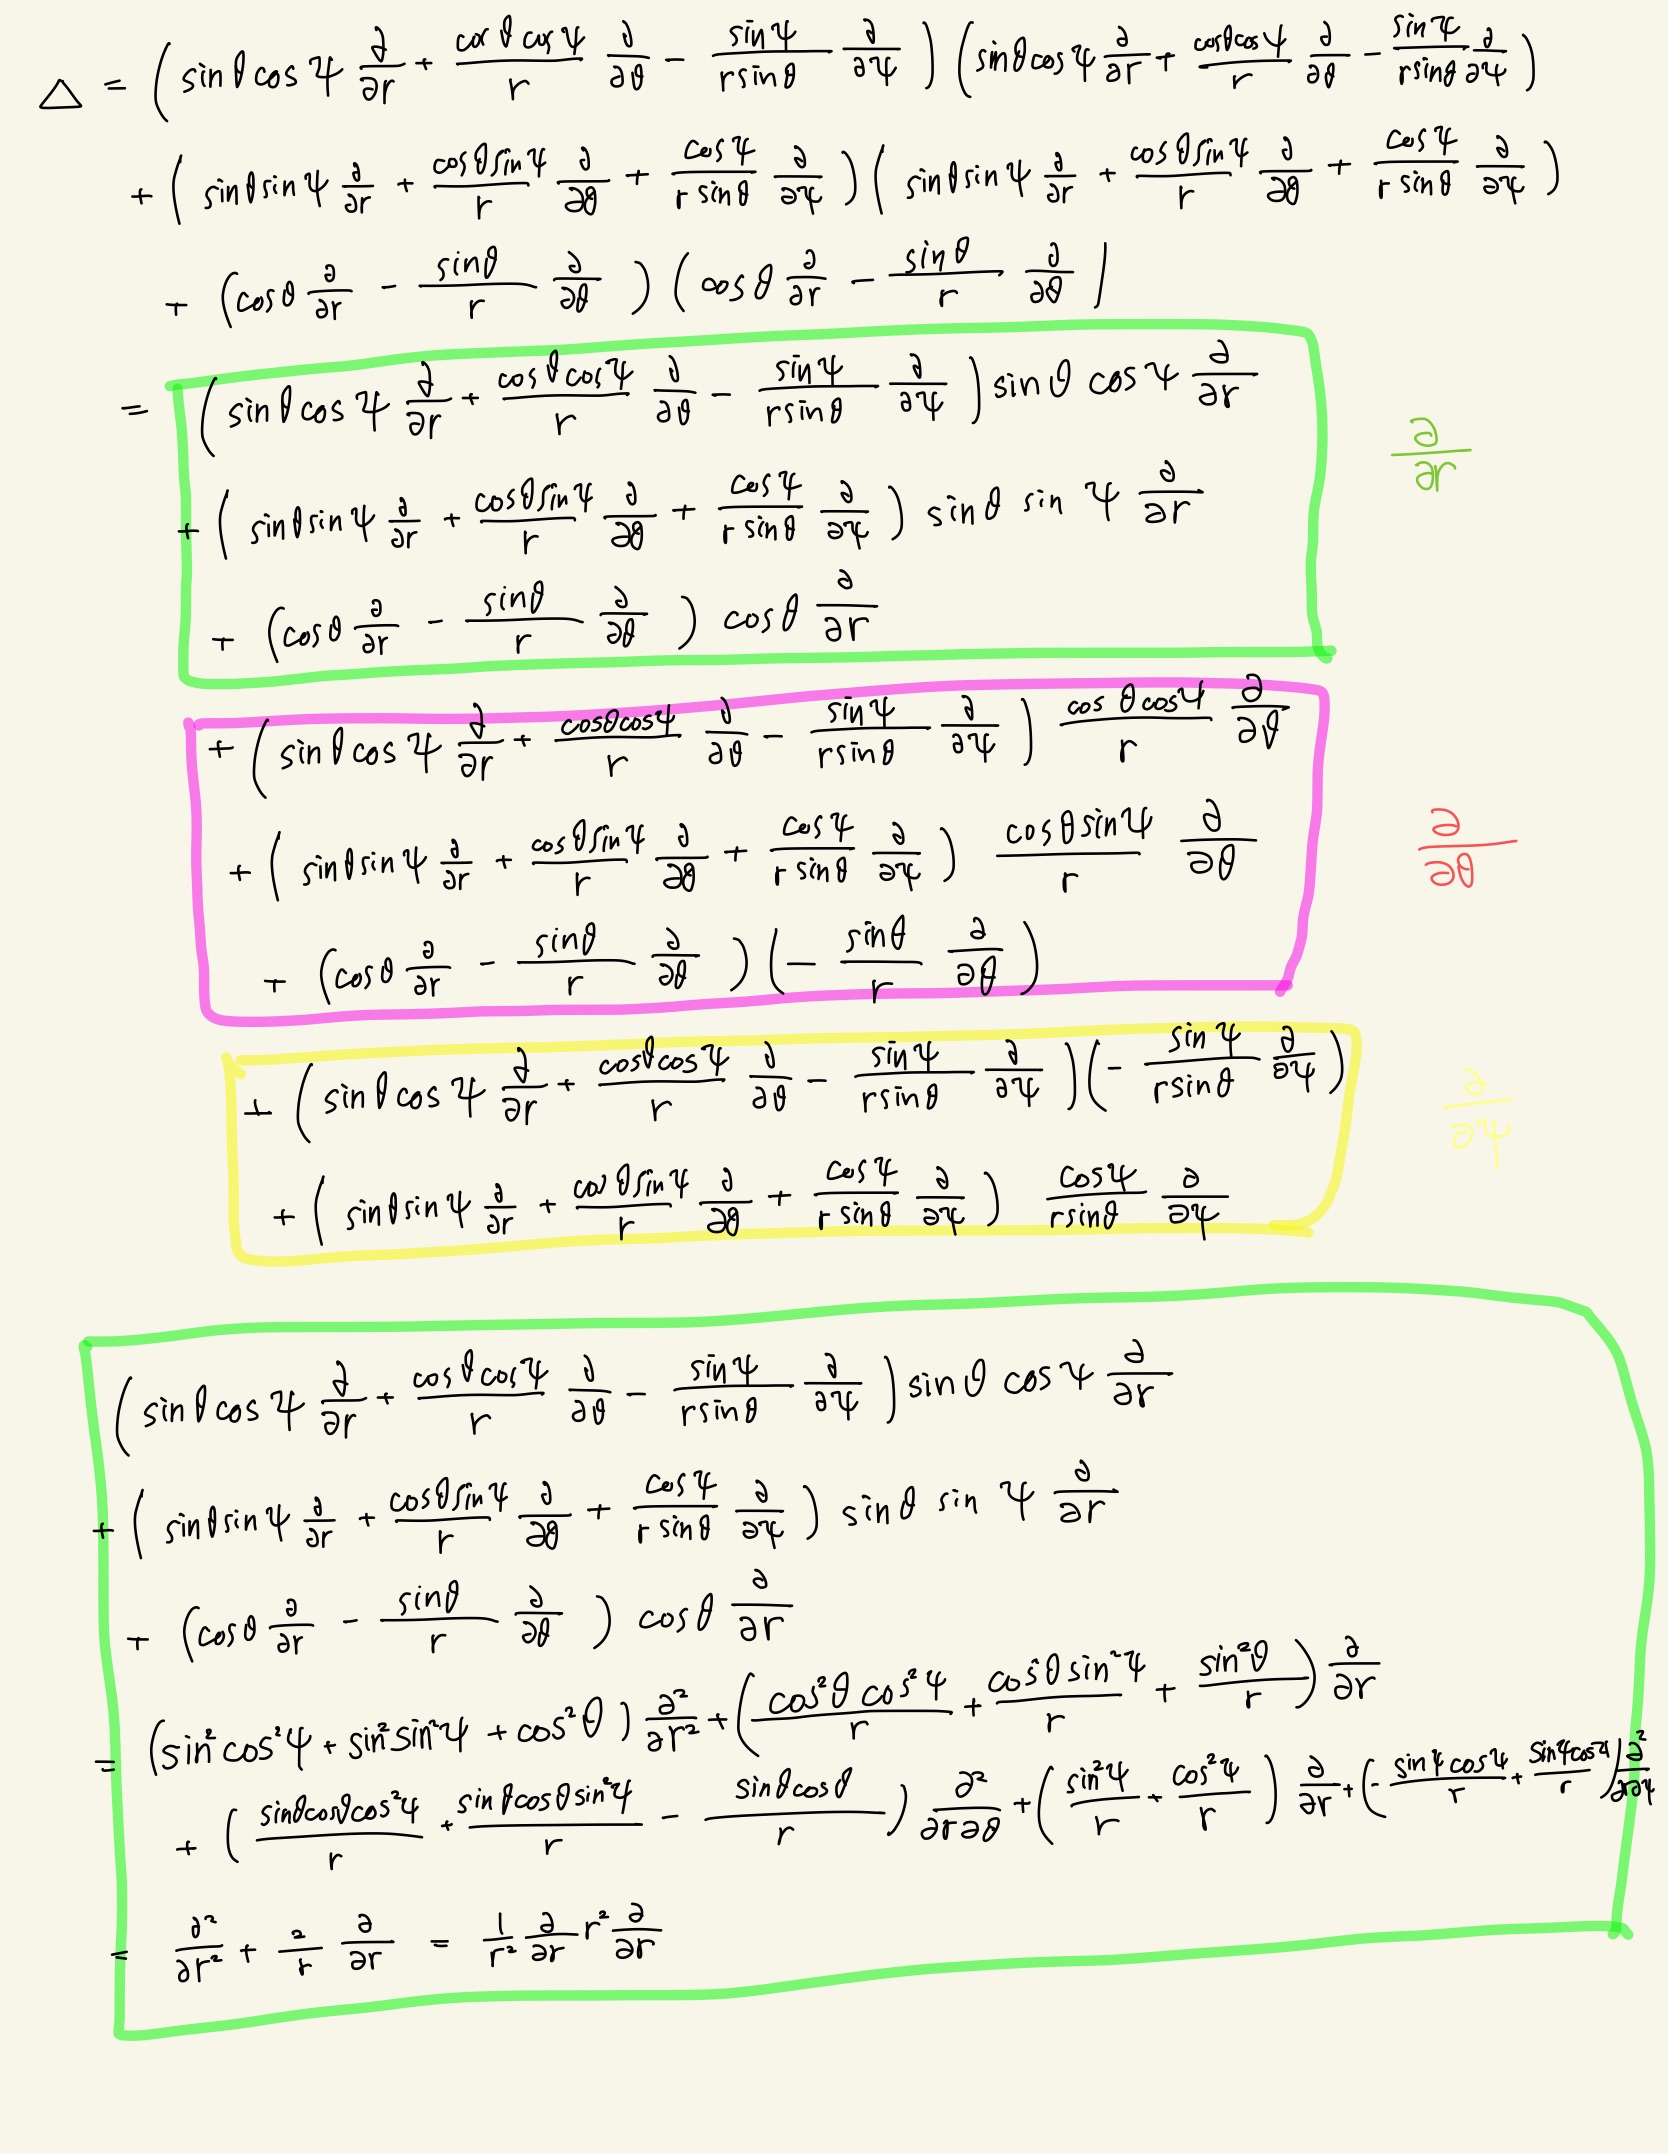 △ = (sinθcosΨ ∂/∂r + cosθcosΨ/r ∂/∂θ − sinΨ/rsinθ ∂/∂Ψ) (sinθcosΨ ∂/∂r + cosθcosΨ/r ∂/∂θ − sinΨ/rsinθ ∂/∂Ψ)
+ (sinθsinΨ ∂/∂r + cosθsinΨ/r ∂/∂θ + cosΨ/rsinθ ∂/∂Ψ) (sinθsinΨ ∂/∂r + cosθsinΨ/r ∂/∂θ + cosΨ/rsinθ ∂/∂Ψ)
+ (cosθ ∂/∂r − sinθ/r ∂/∂θ) (cosθ ∂/∂r − sinθ/r ∂/∂θ)
= (sinθcosΨ ∂/∂r + cosθcosΨ/r ∂/∂θ − sinΨ/rsinθ ∂/∂Ψ) sinθ cosΨ ∂/∂r
∂/∂r
+ (sinθsinΨ ∂/∂r + cosθsinΨ/r ∂/∂θ + cosΨ/rsinθ ∂/∂Ψ) sinθ sinΨ ∂/∂r
+ (cosθ ∂/∂r − sinθ/r ∂/∂θ) cosθ ∂/∂r
+ (sinθcosΨ ∂/∂r + cosθcosΨ/r ∂/∂θ − sinΨ/rsinθ ∂/∂Ψ) cosθcosΨ/r ∂/∂θ
+ (sinθsinΨ ∂/∂r + cosθsinΨ/r ∂/∂θ + cosΨ/rsinθ ∂/∂Ψ) cosθsinΨ/r ∂/∂θ
∂/∂θ
+ (cosθ ∂/∂r − sinθ/r ∂/∂θ) (− sinθ/r ∂/∂θ)
+ (sinθcosΨ ∂/∂r + cosθcosΨ/r ∂/∂θ − sinΨ/rsinθ ∂/∂Ψ) (− sinΨ/rsinθ ∂/∂Ψ)
∂/∂Ψ
+ (sinθsinΨ ∂/∂r + cosθsinΨ/r ∂/∂θ + cosΨ/rsinθ ∂/∂Ψ) cosΨ/rsinθ ∂/∂Ψ
(sinθcosΨ ∂/∂r + cosθcosΨ/r ∂/∂θ − sinΨ/rsinθ ∂/∂Ψ) sinθ cosΨ ∂/∂r
+ (sinθsinΨ ∂/∂r + cosθsinΨ/r ∂/∂θ + cosΨ/rsinθ ∂/∂Ψ) sinθ sinΨ ∂/∂r
+ (cosθ ∂/∂r − sinθ/r ∂/∂θ) cosθ ∂/∂r
= (sin²cos²Ψ + sin²sin²Ψ + cos²θ) ∂²/∂r² + (cos²θcos²Ψ/r + cos²θsin²Ψ/r + sin²θ/r) ∂/∂r
+ (sinθcosθcos²Ψ/r + sinθcosθsin²Ψ/r − sinθcosθ/r) ∂²/∂r∂θ + (sin²Ψ/r + cos²Ψ/r) ∂/∂r + (− sinΨcosΨ/r + sinΨcosΨ/r) ∂²/∂r∂Ψ
= ∂²/∂r² + 2/r ∂/∂r = 1/r² ∂/∂r r² ∂/∂r